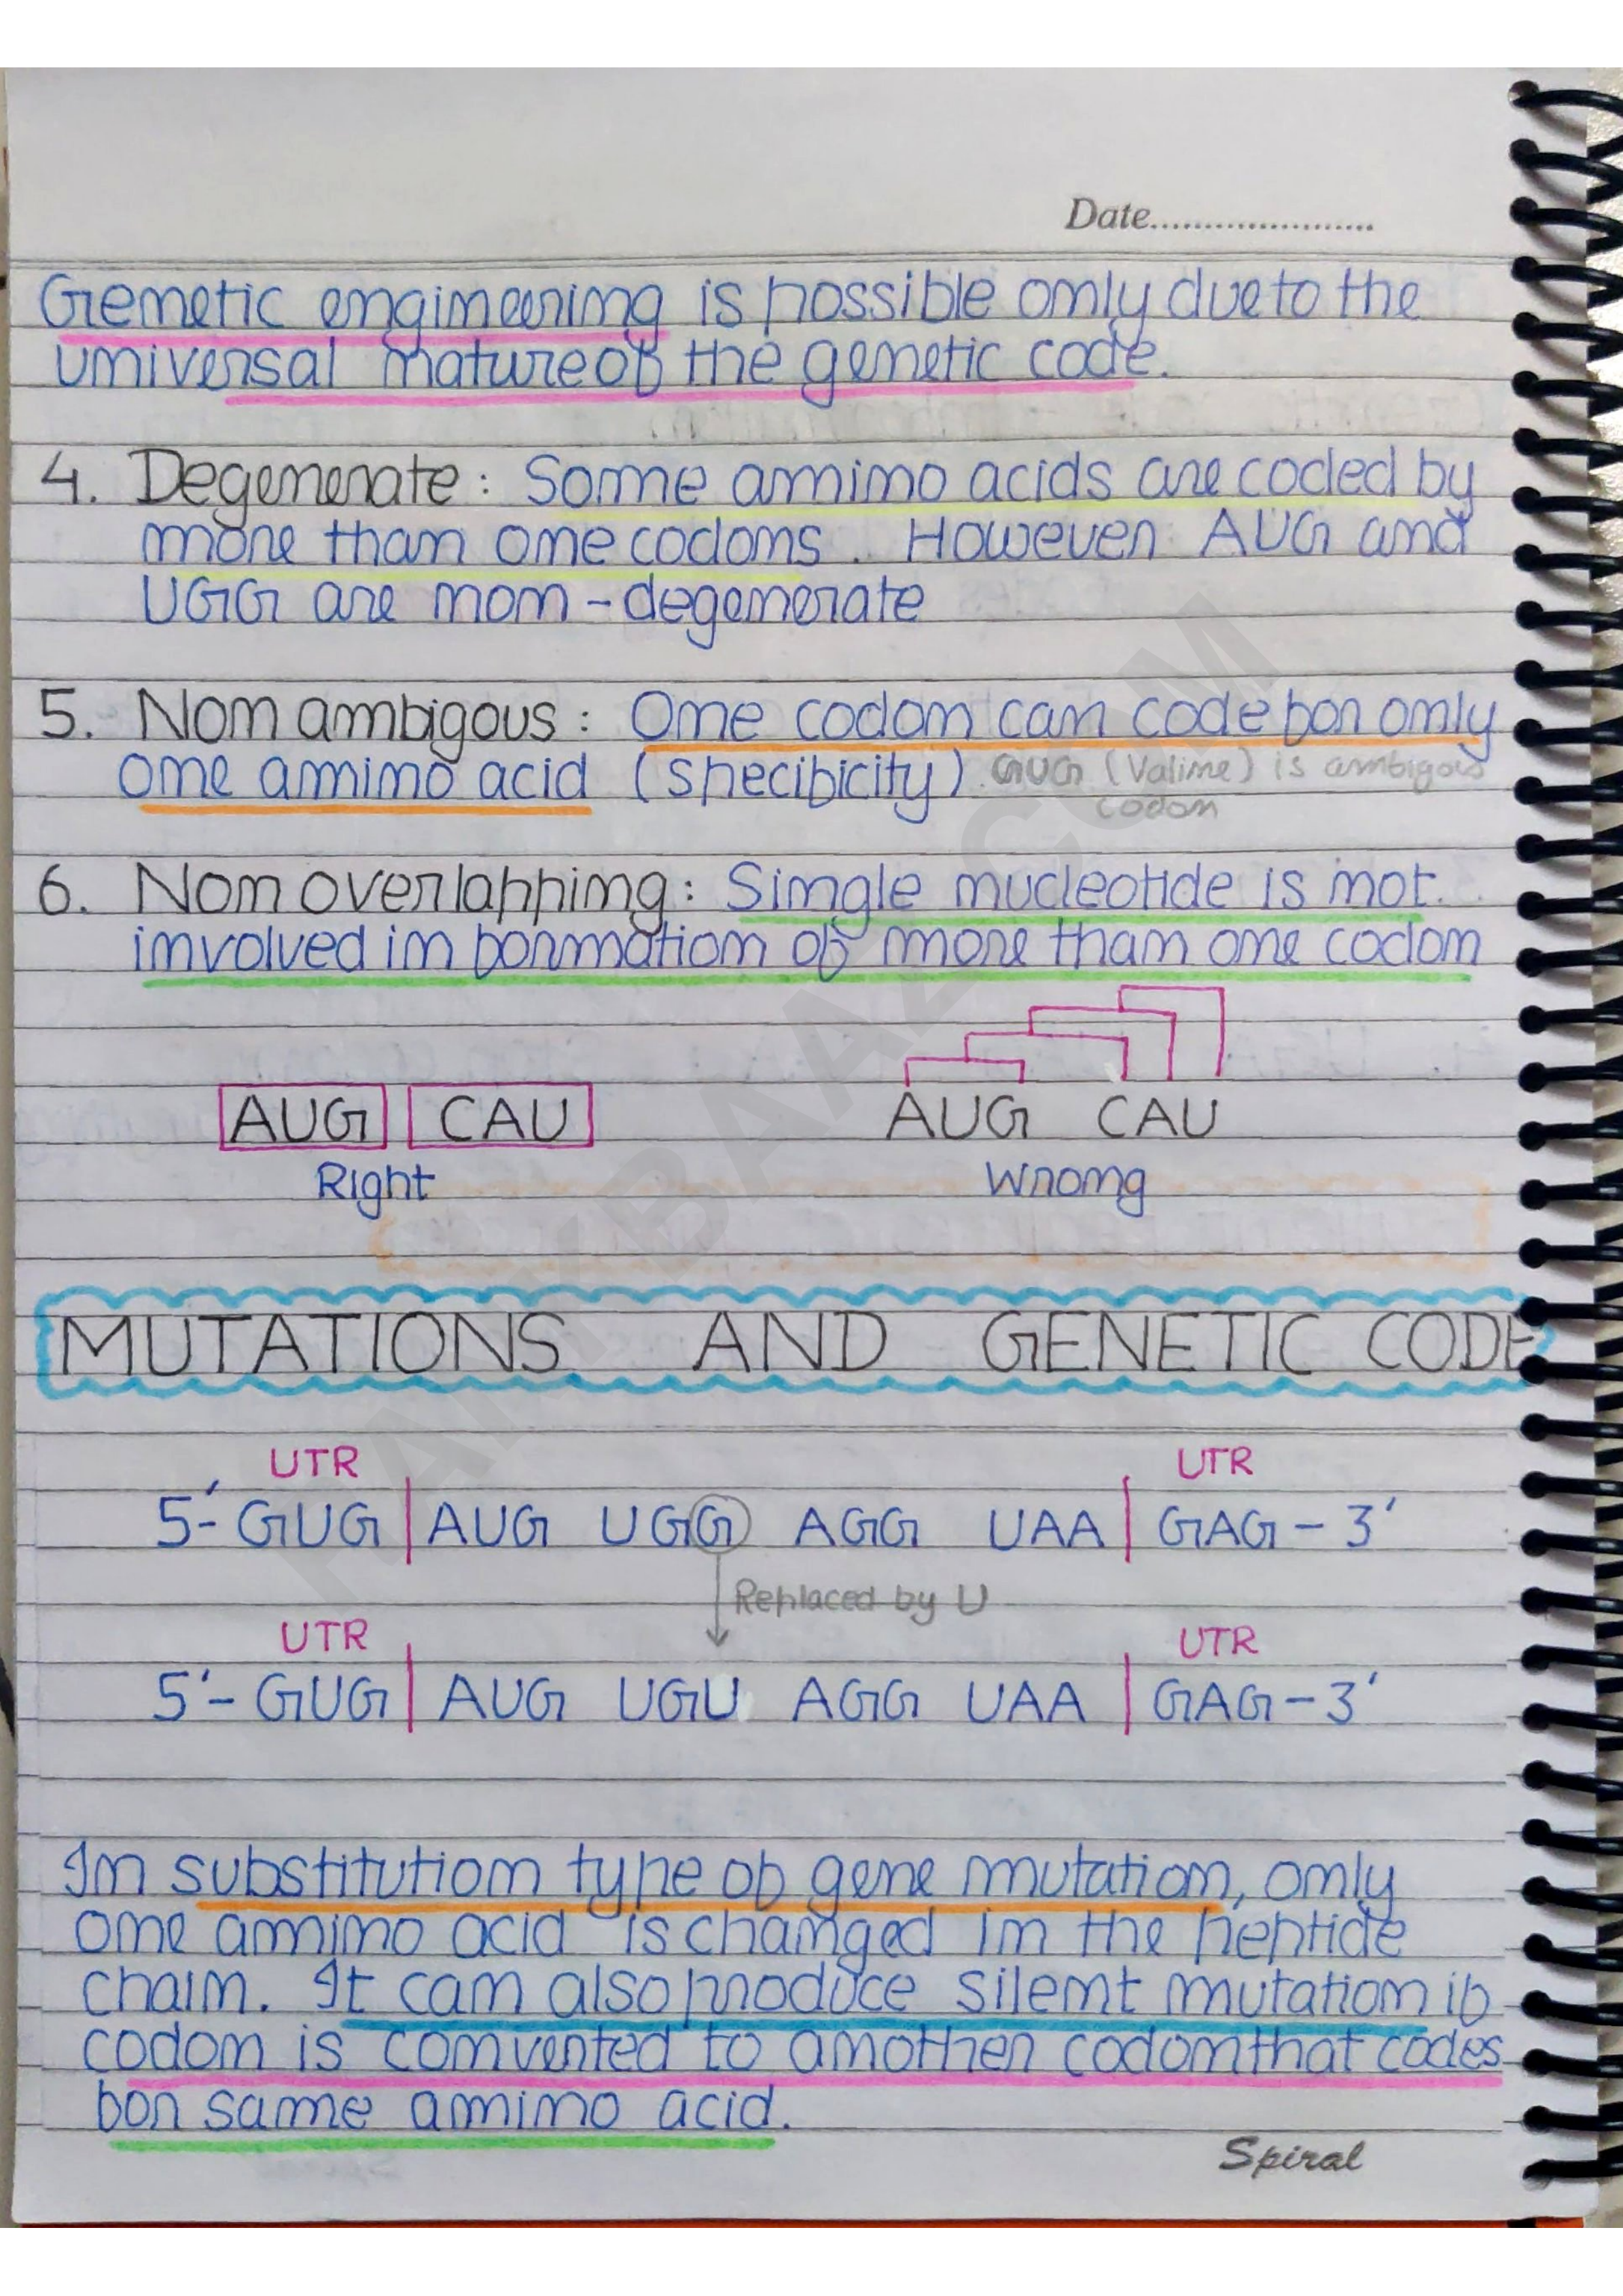 Date......................
Genetic engineering is possible only due to the
universal nature of the genetic code.
4. Degenerate : Some amino acids are coded by
more than one codons. However AUG and
UGG are non - degenerate
5. Non ambigous : One codon can code for only
one amino acid (specificity). GUG (Valine) is ambigous
codon
6. Non overlapping : Single nucleotide is not
involved in formation of more than one codon
AUG CAU AUG CAU
Right Wrong
MUTATIONS AND GENETIC CODE
UTR UTR
5'- GUG | AUG UGG AGG UAA | GAG - 3'
Replaced by U
UTR UTR
5'- GUG | AUG UGU AGG UAA | GAG - 3'
In substitution type of gene mutation, only
one amino acid is changed in the peptide
chain. It can also produce silent mutation if
codon is converted to another codon that codes
for same amino acid.
Spiral